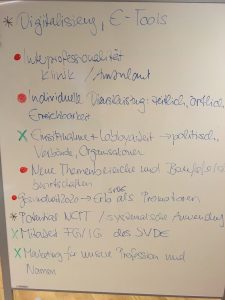 * Digitalisierung, E-Tools
• Interprofessionalität
Klinik / Ambulant
• Individuelle Dienstleistung: zeitlich, örtlich,
Erreichbarkeit
x Einflussnahme + Lobbyarbeit → politisch,
Verbände, Organisationen
• Neue Themenbereiche und
bewirtschaften
• Gesundheit2020 → Erb SVDE als Promotoren
* Potential NCPT / systematische Anwendung
x Mitarbeit FG/IG des SVDE
x Marketing für unsere Profession und
Namen